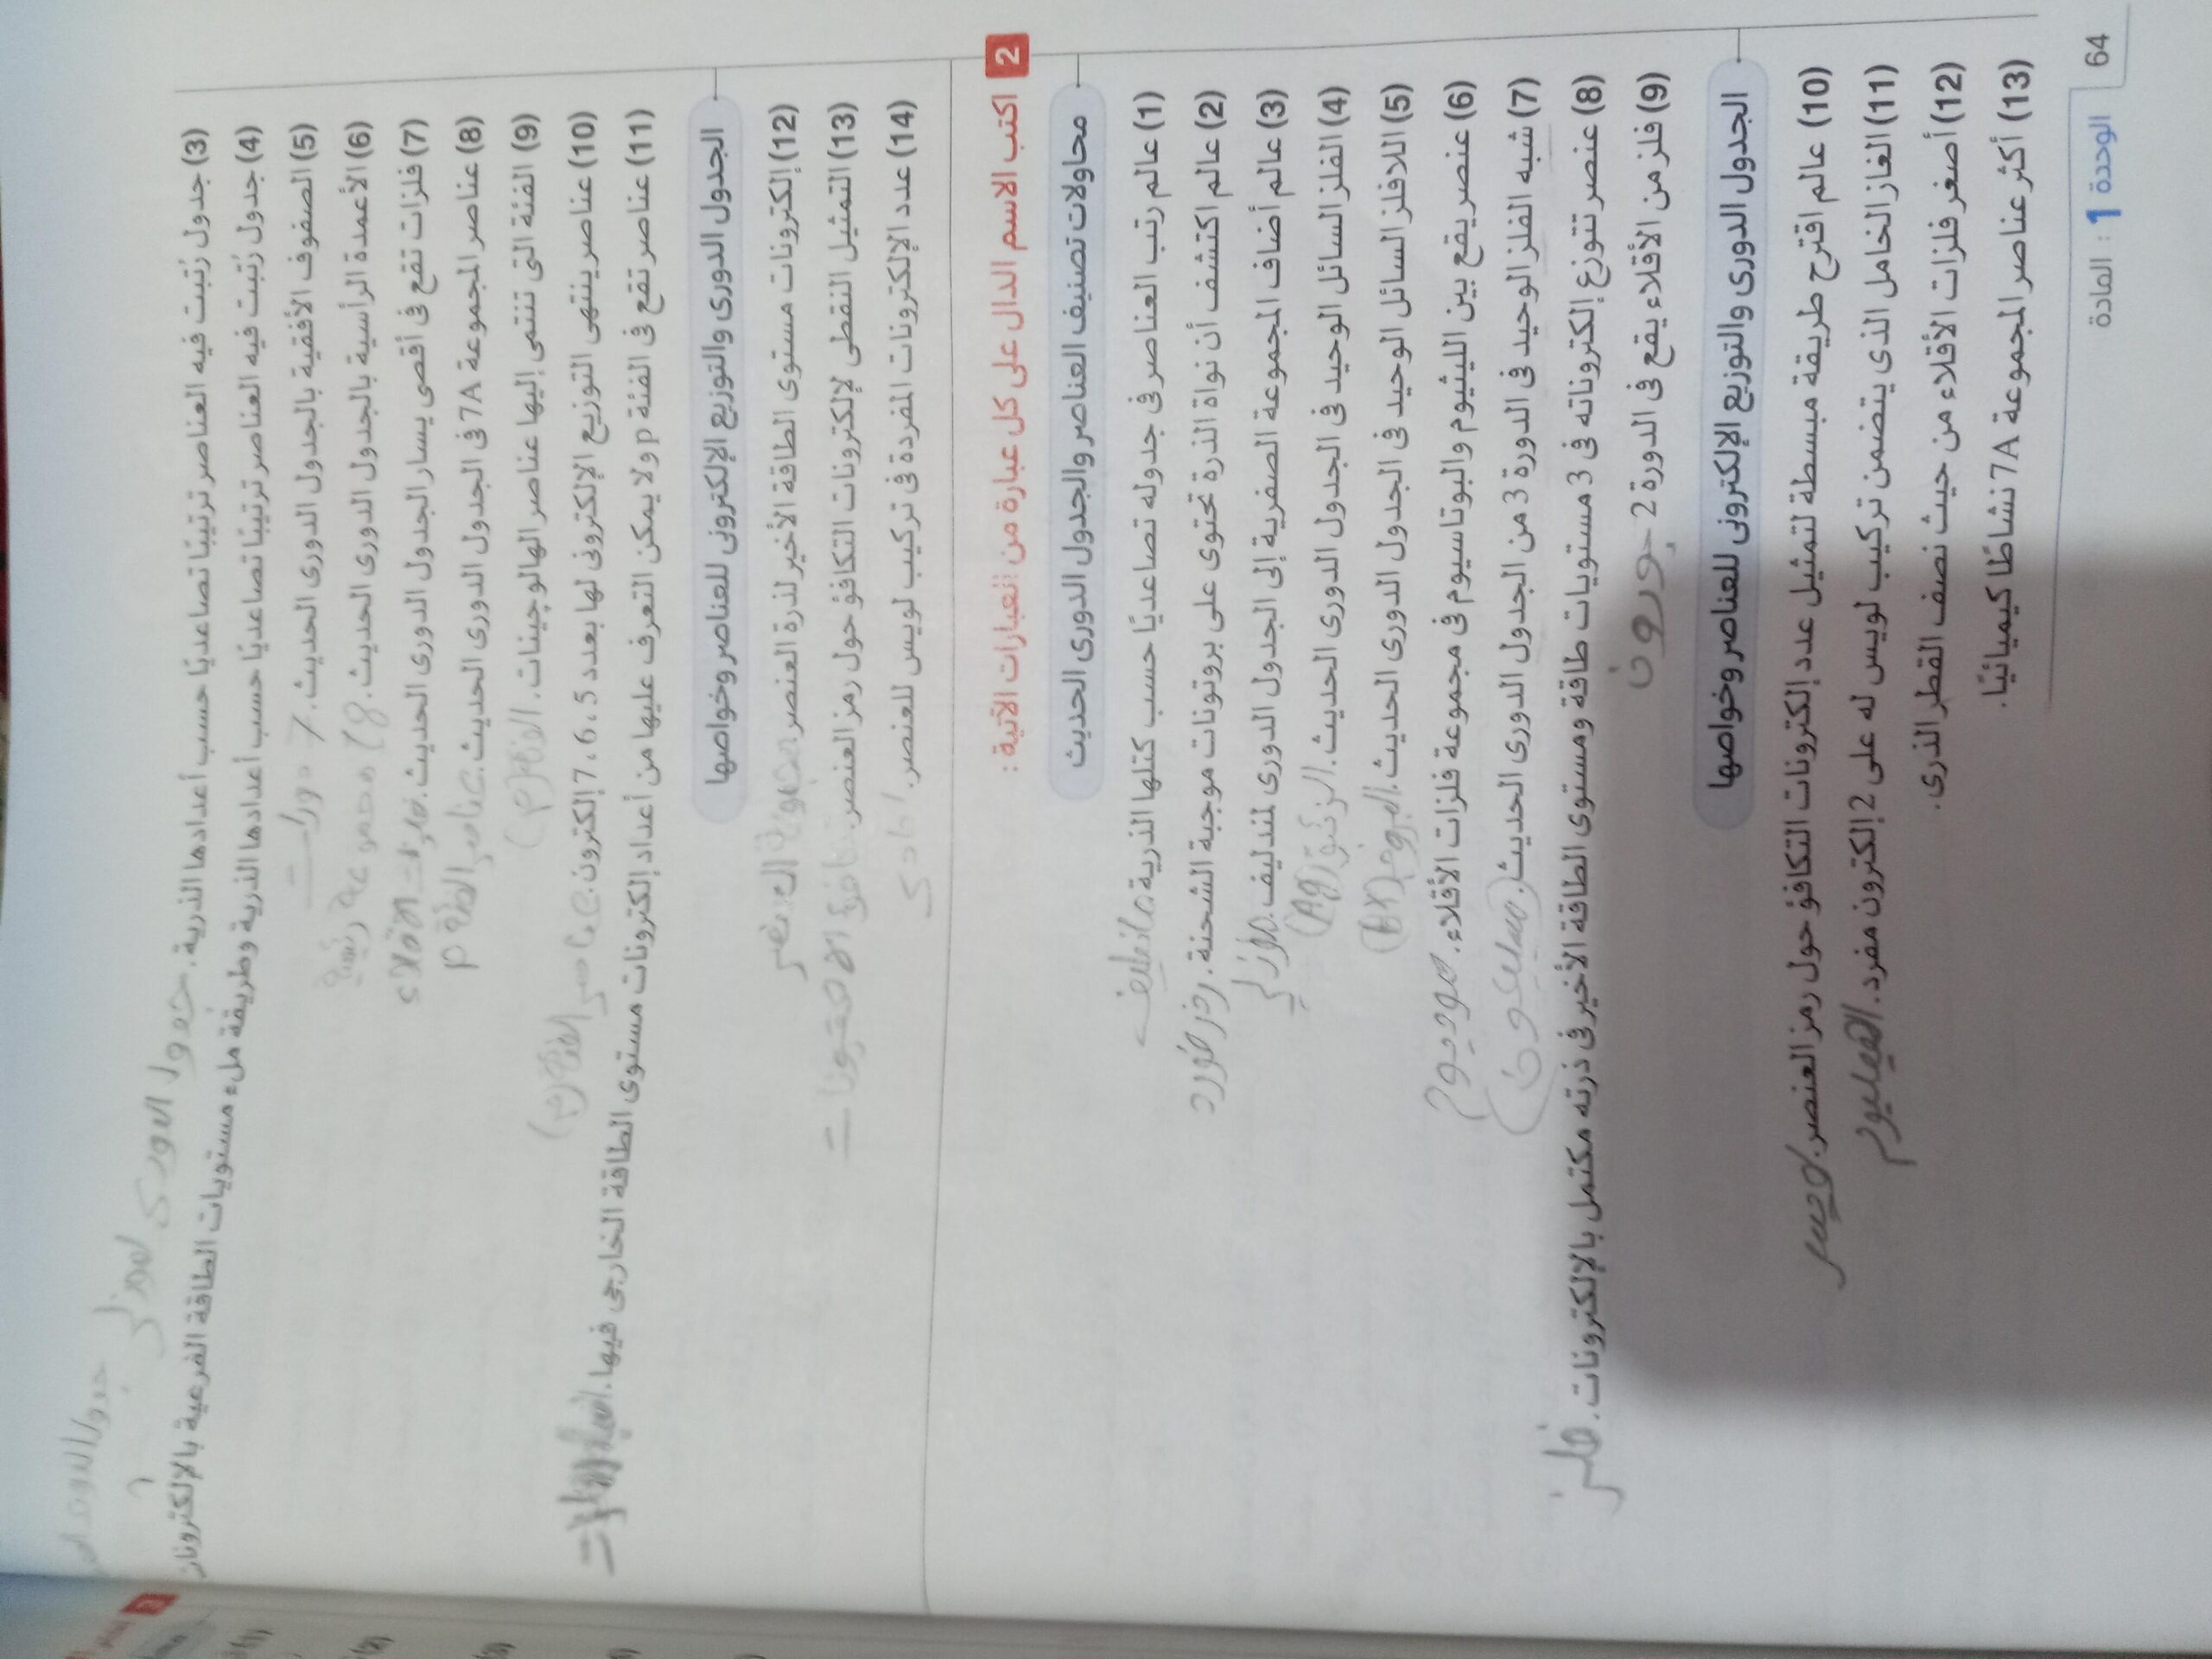 (3) جدول رُتبت فيه العناصر ترتيبًا تصاعديًا حسب أعدادها الذرية. جدول الدورى لموزلى
(4) جدول رُتبت فيه العناصر ترتيبًا تصاعديًا حسب أعدادها الذرية وطريقة ملء مستويات الطاقة الفرعية بالإلكترونات
(5) الصفوف الأفقية بالجدول الدورى الحديث. 7 دورات
(6) الأعمدة الرأسية بالجدول الدورى الحديث. 18 مجموعة رئيسية
(7) فلزات تقع فى أقصى يسار الجدول الدورى الحديث.
(8) عناصر المجموعة 7A فى الجدول الدورى الحديث. عناصر الفئة p
(9) الفئة التى تنتمى إليها عناصر الهالوجينات. الفئة (p)
(10) عناصر ينتهى التوزيع الإلكترونى لها بعدد 5، 6، 7 إلكترون. عناصر الفئة (p)
(11) عناصر تقع فى الفئة p ولا يمكن التعرف عليها من أعداد إلكترونات مستوى الطاقة الخارجى فيها.
الجدول الدورى والتوزيع الإلكترونى للعناصر وخواصها
(12) إلكترونات مستوى الطاقة الأخير لذرة العنصر. العنصر
(13) التمثيل النقطى لإلكترونات التكافؤ حول رمز العنصر.
(14) عدد الإلكترونات المفردة فى تركيب لويس للعنصر.
2 اكتب الاسم الدال على كل عبارة من العبارات الآتية :
محاولات تصنيف العناصر والجدول الدورى الحديث
(1) عالم رتب العناصر فى جدوله تصاعديًا حسب كتلها الذرية. مندليف
(2) عالم اكتشف أن نواة الذرة تحتوى على بروتونات موجبة الشحنة. رذرفورد
(3) عالم أضاف المجموعة الصفرية إلى الجدول الدورى لمندليف. موزلى
(4) الفلز السائل الوحيد فى الجدول الدورى الحديث. الزئبق (Ag)
(5) اللافلز السائل الوحيد فى الجدول الدورى الحديث. البروم (Br)
(6) عنصر يقع بين الليثيوم والبوتاسيوم فى مجموعة فلزات الأقلاء. صوديوم
(7) شبه الفلز الوحيد فى الدورة 3 من الجدول الدورى الحديث. (سليكون)
(8) عنصر تتوزع إلكتروناته فى 3 مستويات طاقة ومستوى الطاقة الأخير فى ذرته مكتمل بالإلكترونات. فلز
(9) فلز من الأقلاء يقع فى الدورة 2 بورون
الجدول الدورى والتوزيع الإلكترونى للعناصر وخواصها
(10) عالم اقترح طريقة مبسطة لتمثيل عدد إلكترونات التكافؤ حول رمز العنصر.
(11) الغاز الخامل الذى يتضمن تركيب لويس له على 2 إلكترون مفرد. الهيليوم
(12) أصغر فلزات الأقلاء من حيث نصف القطر الذرى.
(13) أكثر عناصر المجموعة 7A نشاطًا كيميائيًا.
64 الوحدة 1 : المادة